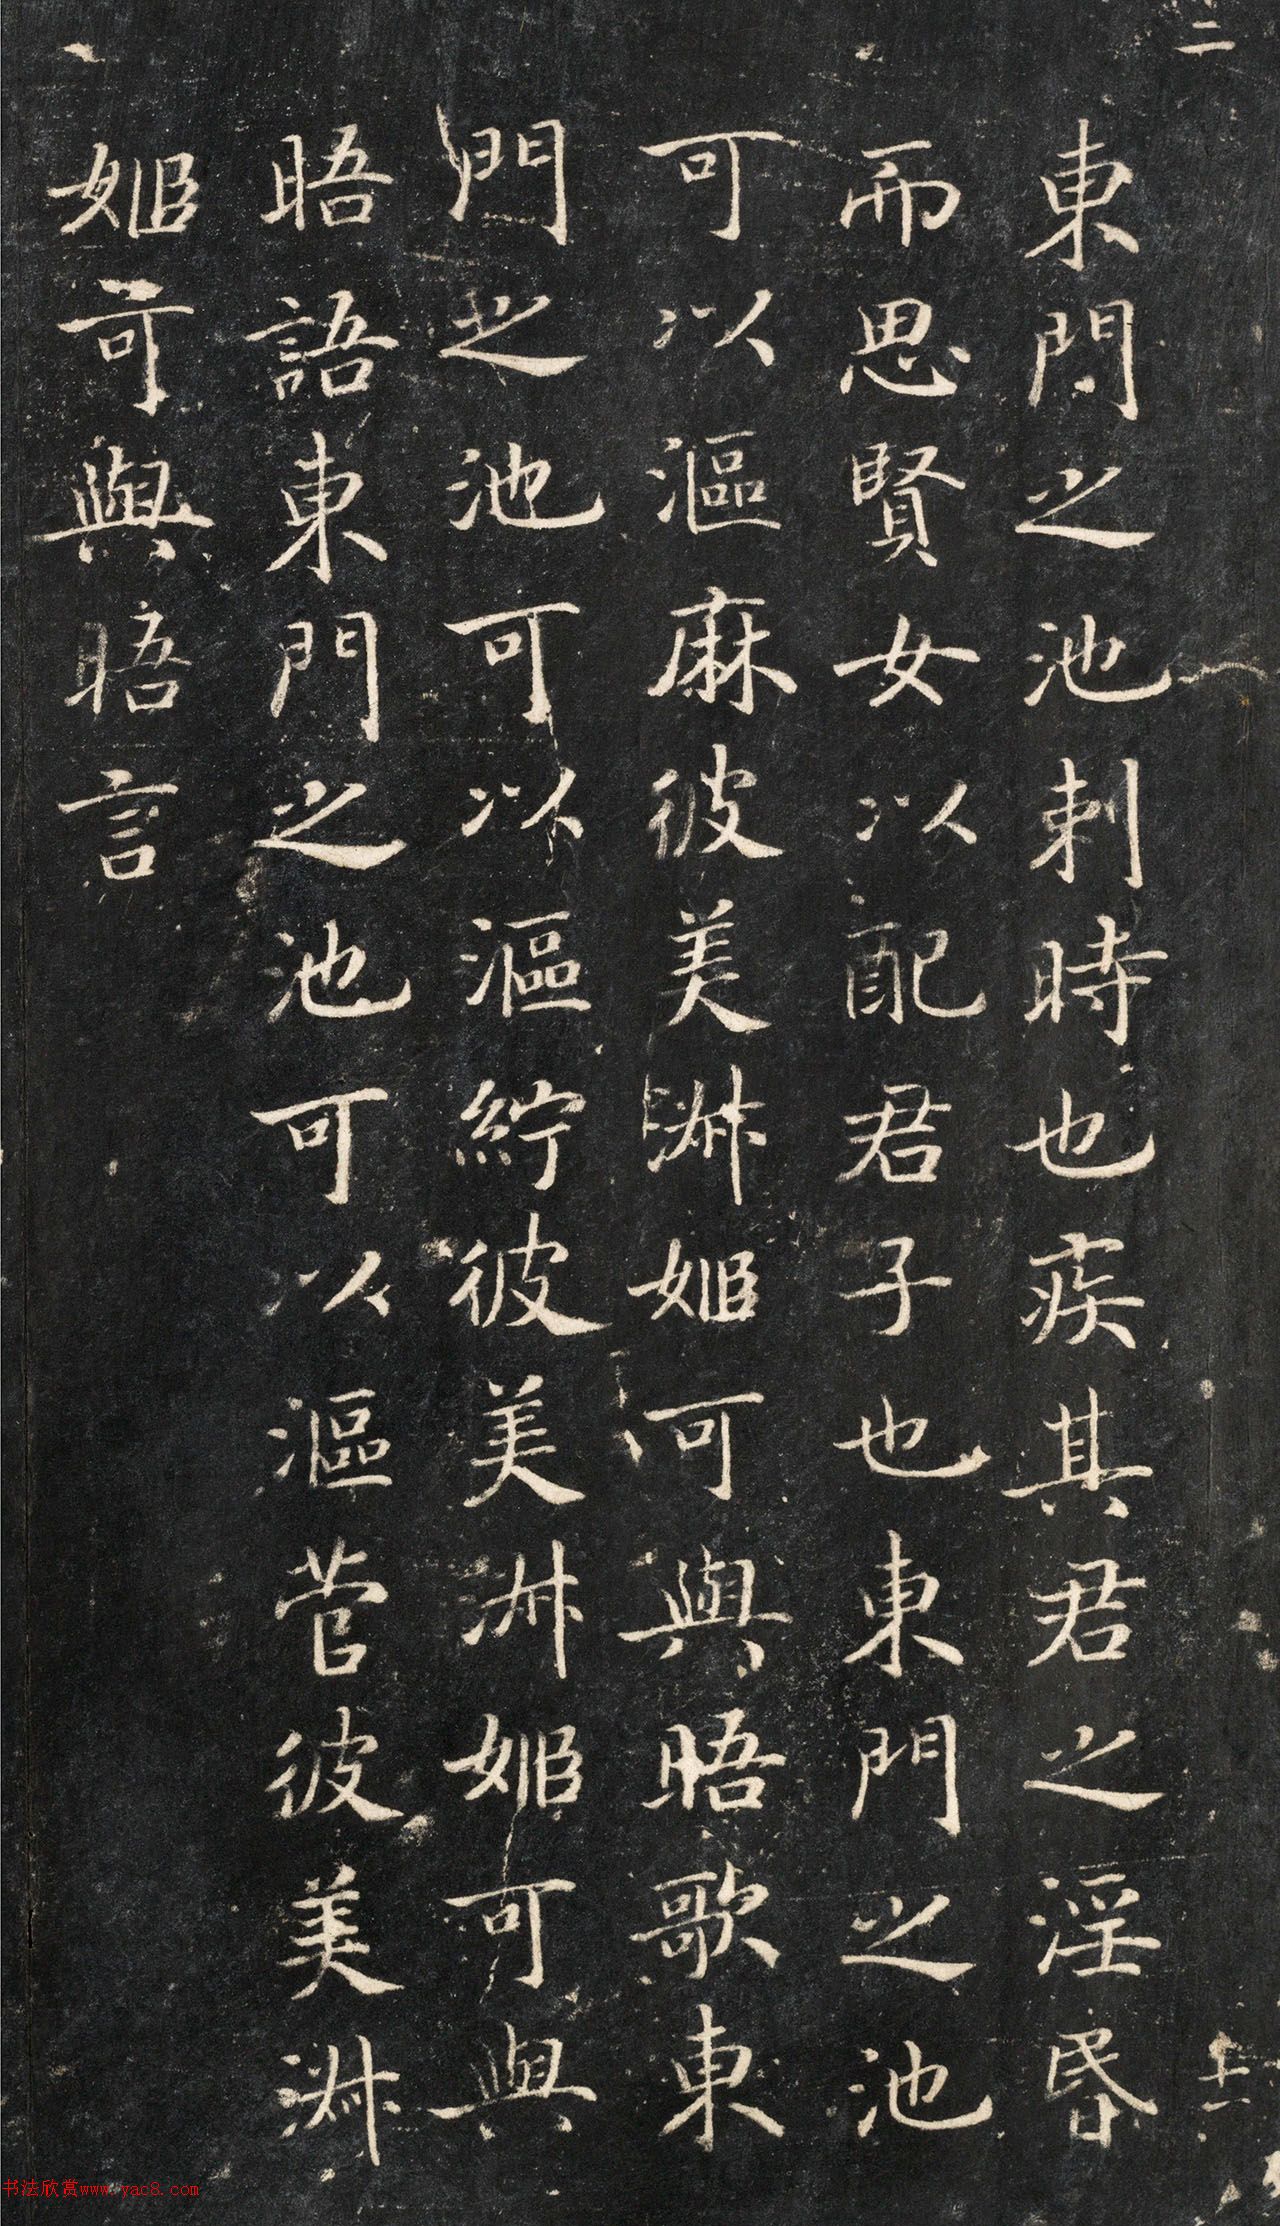 二
東門之池刺時也疾其君之淫昏
而思賢女以配君子也東門之池
可以漚麻彼美淋姬可與晤歌東
門之池可以漚紵彼美淋姬可與
晤語東門之池可以漚菅彼美淋
姬可與晤言
十二
书法欣赏www.yac8.com